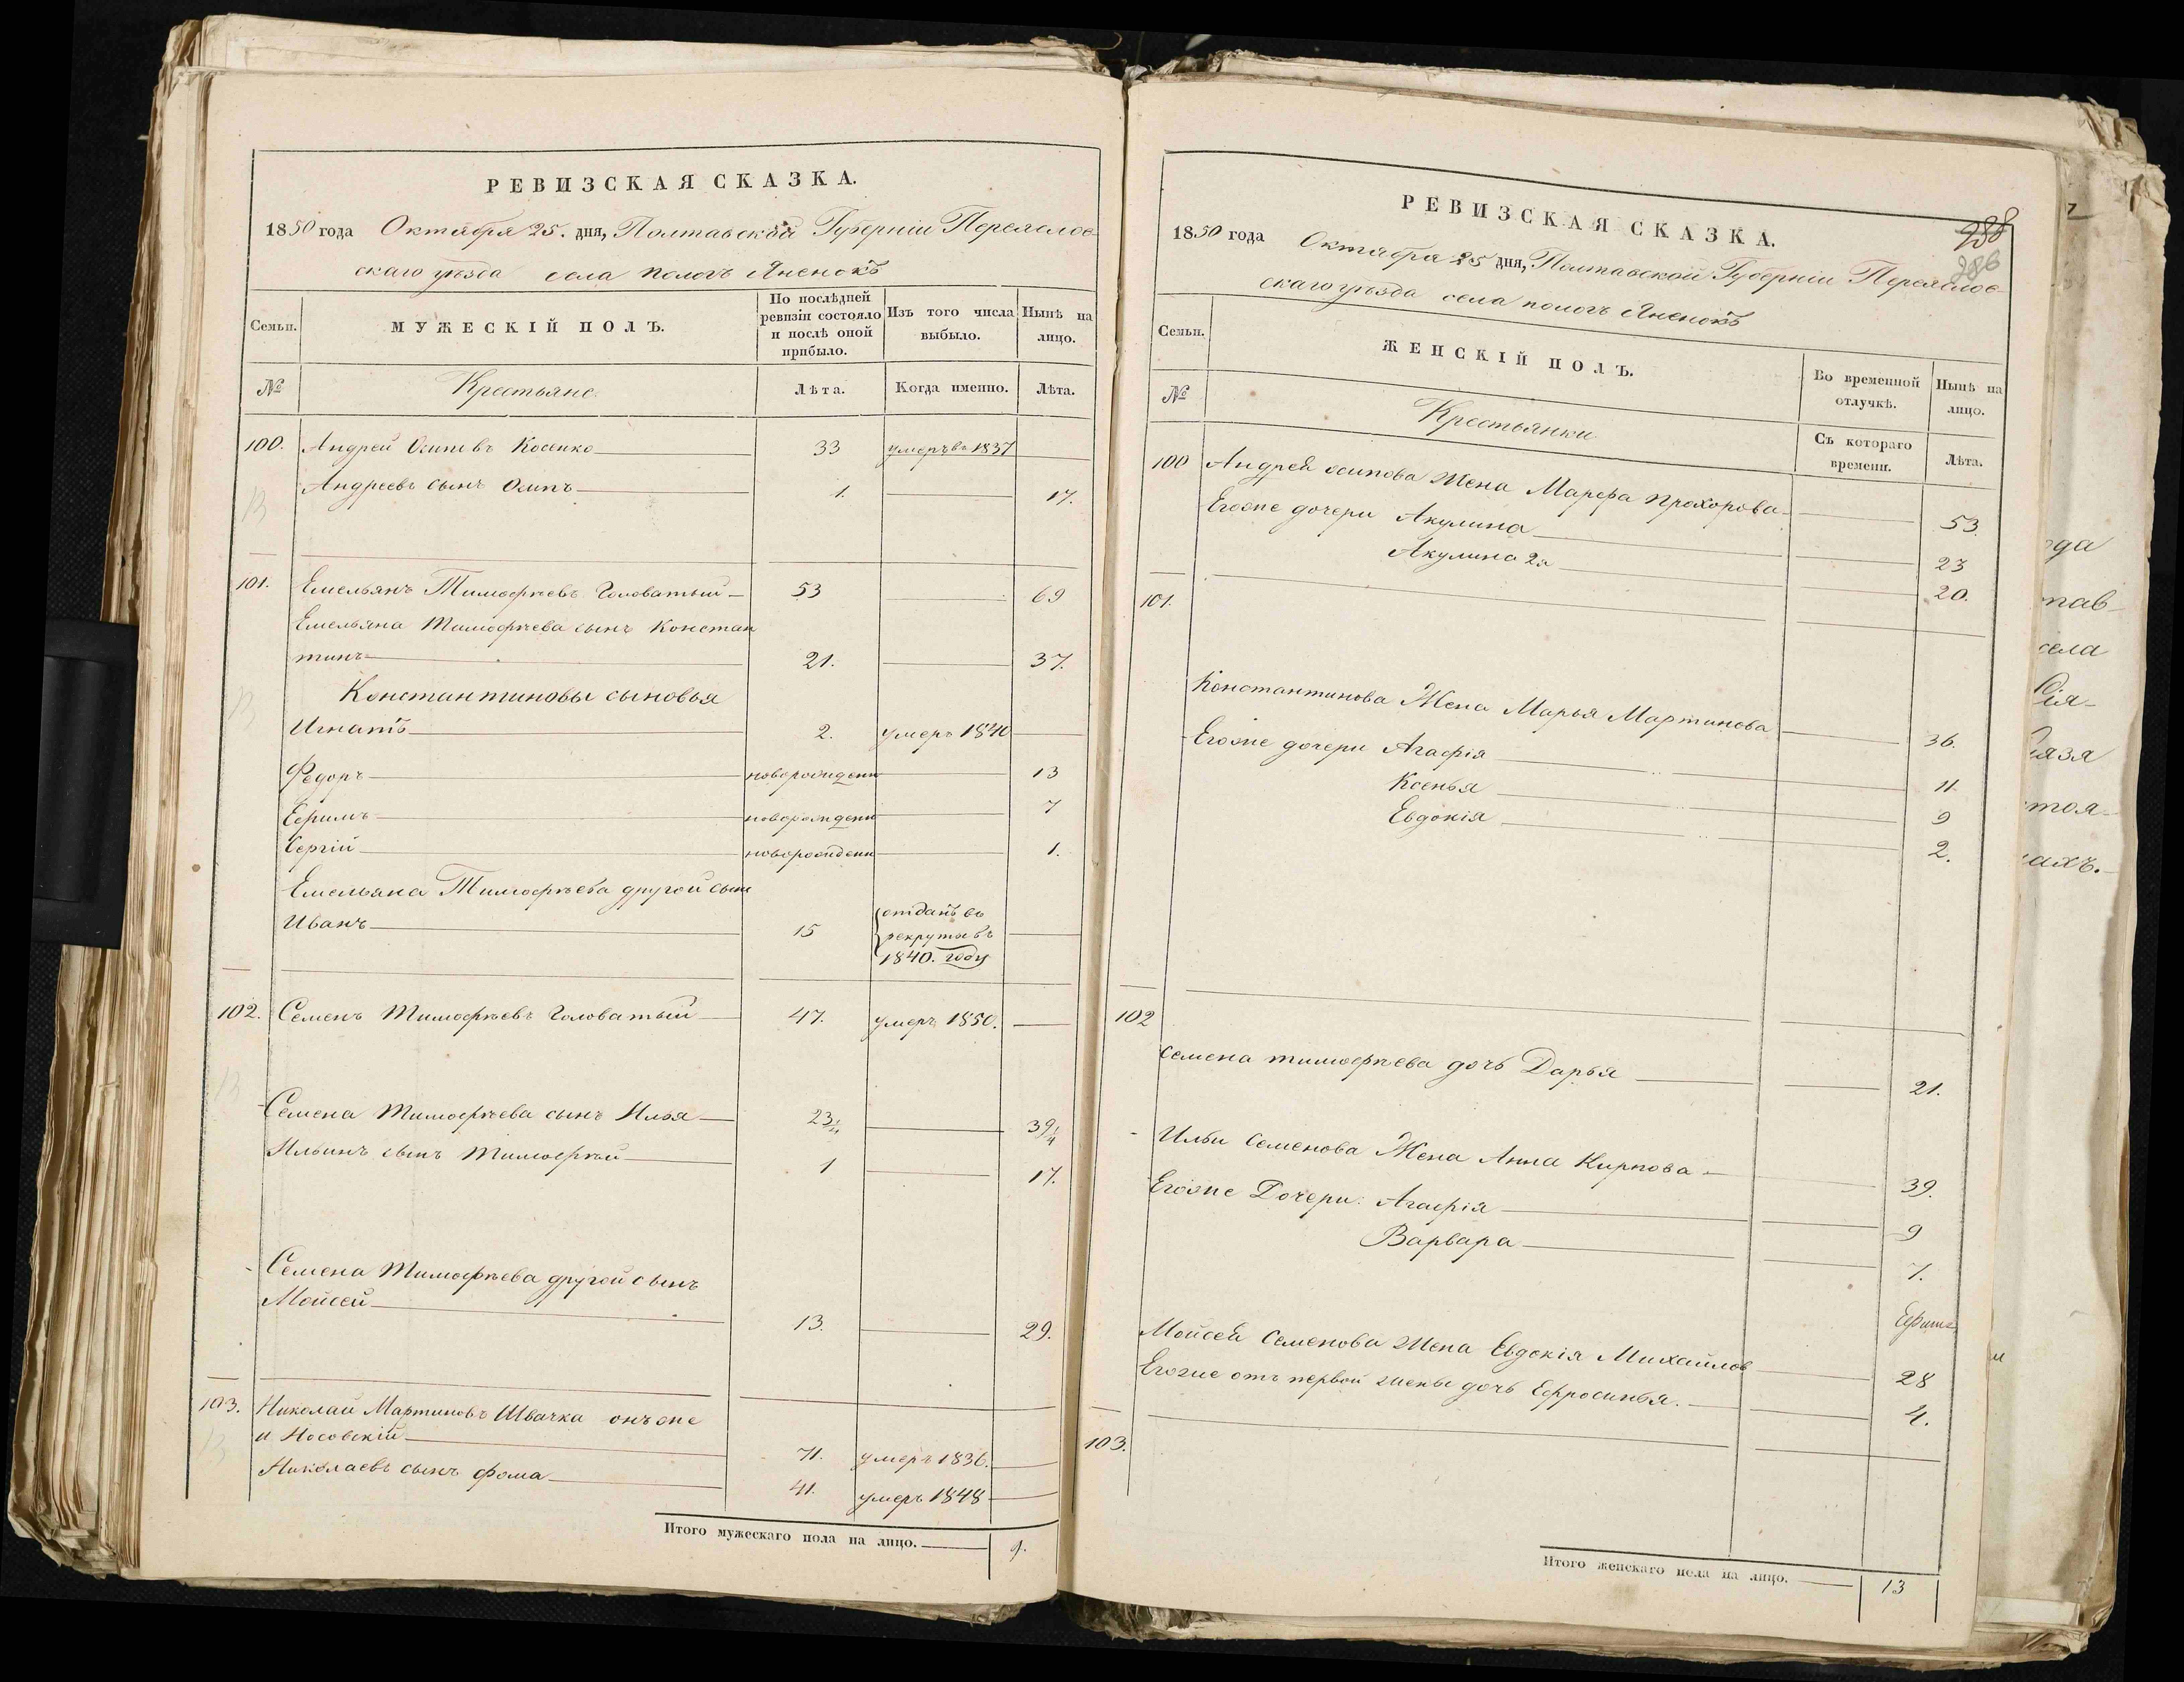 РЕВИЗСКАЯ СКАЗКА.
1850 года Октября 25. дня, Полтавской Губерніи Переяслов-
скаго уѣзда села пологъ Яненокъ
Семьи.
МУЖЕСКІЙ ПОЛЪ.
По послѣдней ревизіи состояло и послѣ оной прибыло.
Изъ того числа выбыло.
Нынѣ на лицо.
№ Крестьяне. Лѣта. Когда именно. Лѣта.
100. Андрей Осиповъ Косенко 33 умеръ въ 1837
Андреевъ сынъ Осипъ 1. 17.
101. Емельянъ Тимофѣевъ Головатый 53 69
Емельяна Тимофѣева сынъ Констан
тинъ 21. 37.
Константиновы сыновья
Игнатъ 2. умеръ 1840
Федоръ новорожденн 13
Ефимъ новорожденн 7
Сергій новорожденн 1.
Емельяна Тимофѣева другой сын
Иванъ 15 отданъ въ
рекруты въ
1840. году
102. Семенъ Тимофѣевъ Головатый 47. умеръ 1850.
Семена Тимофѣева сынъ Илья 23¼ 39¼
Ильинъ сынъ Тимофѣй 1 17.
Семена Тимофѣева другой сынъ
Мойсей 13. 29.
103. Николай Мартиновъ Швачка онъ же
и Носовскій 71. умеръ 1836.
Николаевъ сынъ фома 41. умеръ 1848
Итого мужескаго пола на лицо. 9.
РЕВИЗСКАЯ СКАЗКА.
288
286
1850 года Октября 25 дня, Полтавской Губерніи Переяслов-
скаго уѣзда села пологъ Яненокъ
Семьи.
ЖЕНСКІЙ ПОЛЪ.
Во временной отлучкѣ.
Нынѣ на лицо.
№ Крестьянки Съ котораго времени. Лѣта.
100 Андрея осипова Жена Марфа Прохорова 53.
Егоже дочери Акулина 23
Акулина 2я 20.
101.
Константинова Жена Марья Мартинова 36.
Егоже дочери Агафія 11
Ксенья 9
Евдокія 2.
102
Семена тимофѣева дочь Дарья 21.
Ильи Семенова Жена Анна Кирпова 39.
Егоже Дочери: Агафія 9
Варвара 7.
Мойсея Семенова Жена Евдокія Михайлов 28
Егоже отъ первой жены дочь Ефросинья. 4.
103.
Итого женскаго пола на лицо. 13